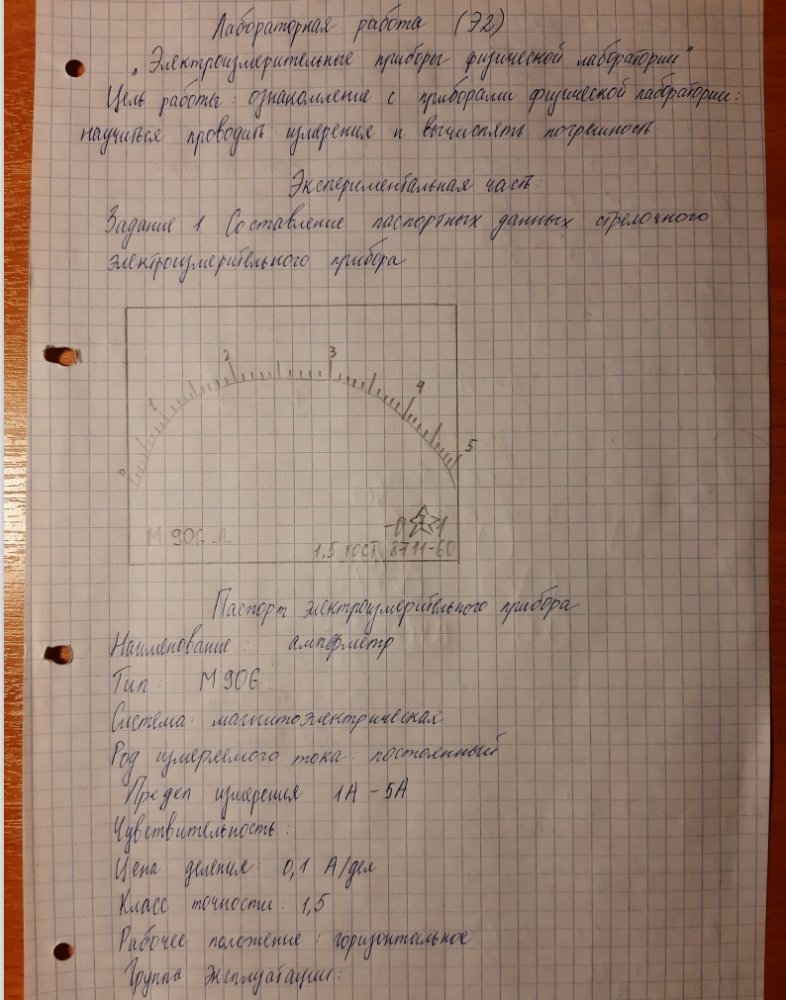 Лабораторная работа (Э2)
„Электроизмерительные приборы физической лаборатории"
Цель работы: ознакомление с приборами физической лаборатории:
научиться проводить измерения и вычислять погрешность
Экспериментальная часть:
Задание 1. Составление паспортных данных стрелочного
электроизмерительного прибора
0 1 2 3 4 5
М 906
1,5 ГОСТ 8711-60
Паспорт электроизмерительного прибора
Наименование: амперметр
Тип: М 906
Система: магнитоэлектрическая
Род измеряемого тока: постоянный
Предел измерения 1А - 5А
Чувствительность:
Цена деления: 0,1 А/дел
Класс точности: 1,5
Рабочее положение: горизонтальное
Группа эксплуатации: